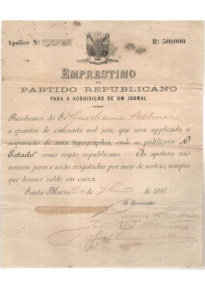 Apolice Nº
Rs 50$000
EMPRESTIMO
DO
PARTIDO REPUBLICANO
PARA A ACQUISIÇÃO DE UM JORNAL
Recebemos do Sr. Guilherme
a quantia de cincoenta mil reis, que será applicada a
acquisição de uma typographia, onde se publicará "O
Estado" como orgão republicano. As apolices não
vencem juros e serão resgatadas por meio de sorteio, sempre
que houver saldo em caixa.
Santa Maria, de de 1897
A Commissão